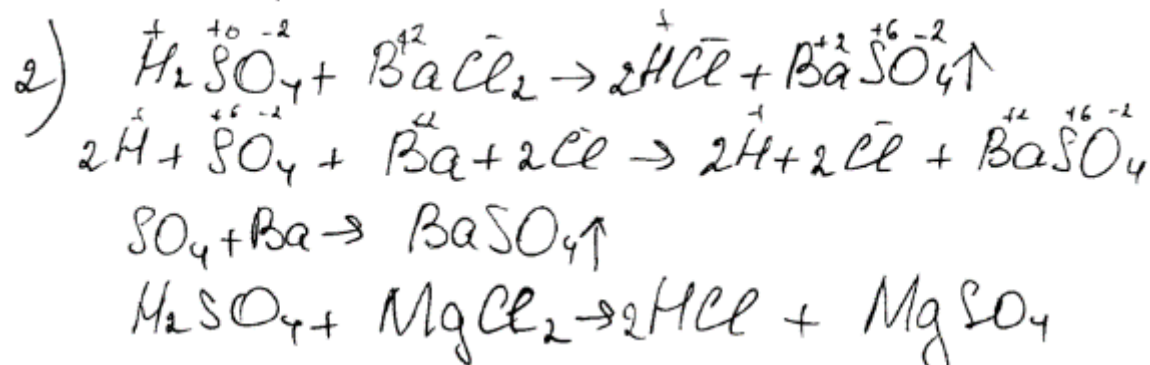 2) H₂⁺S⁺⁶O₄⁻² + Ba⁺²Cl₂⁻ → 2H⁺Cl⁻ + Ba⁺²S⁺⁶O₄⁻²↑
2H⁺ + S⁺⁶O₄⁻² + Ba⁺² + 2Cl⁻ → 2H⁺ + 2Cl⁻ + Ba⁺²S⁺⁶O₄⁻²
SO₄ + Ba → BaSO₄↑
H₂SO₄ + MgCl₂ → 2HCl + MgSO₄